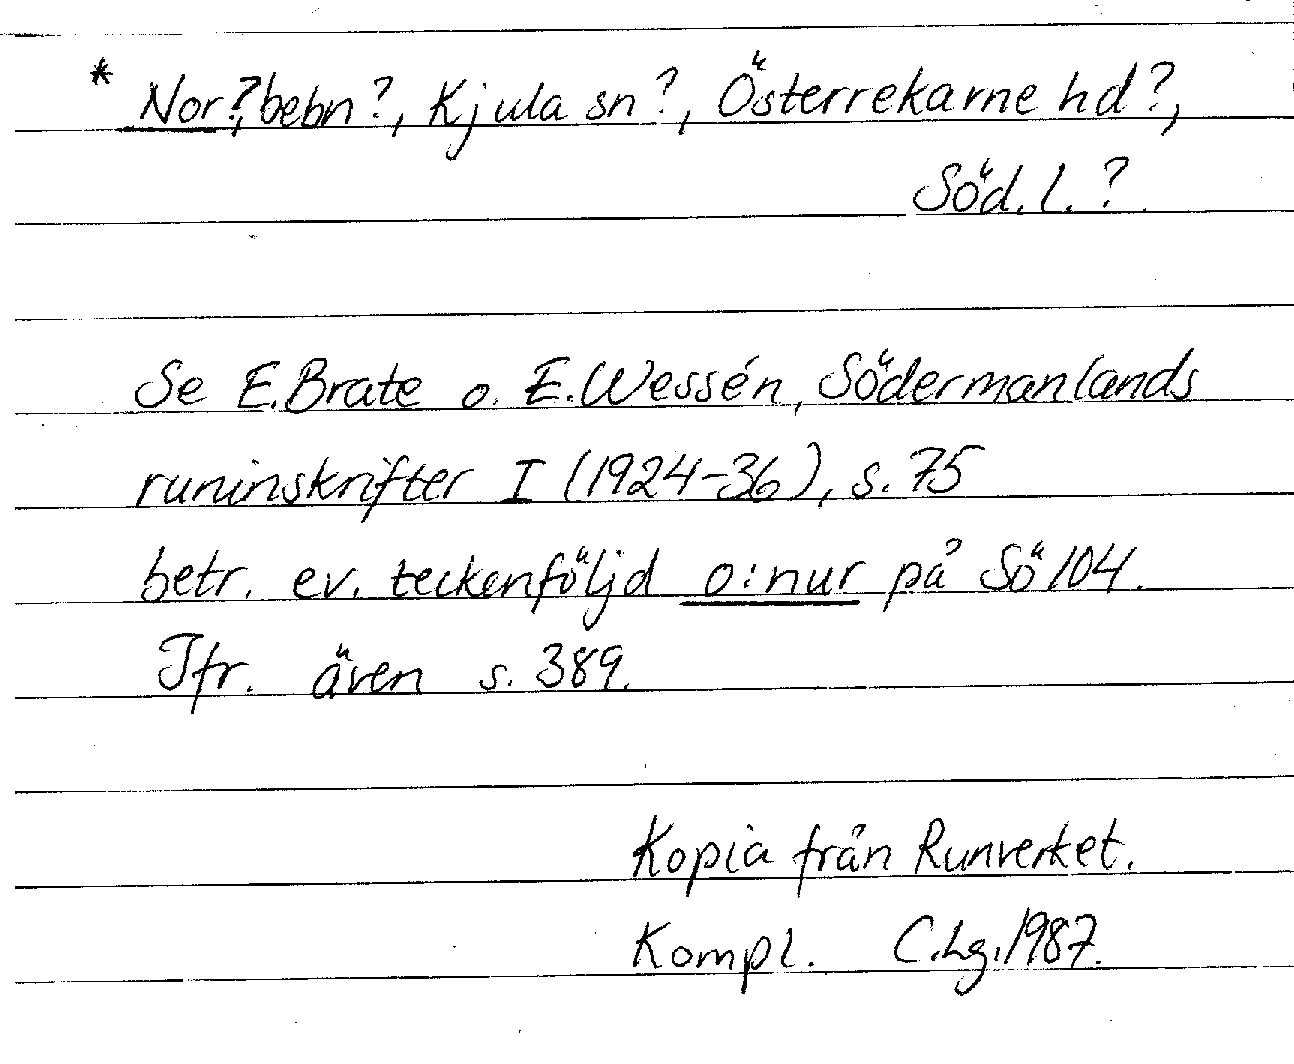 * Nor?, bebn?, Kjula sn?, Österrekarne hd?,
Söd. l. ?
Se E. Brate o. E. Wessén, Södermanlands
runinskrifter I (1924-36), s. 75
betr. ev. teckenföljd o:nur på Sö 104.
Jfr. även s. 389.
Kopia från Runverket.
Kompl. C. Lg. 1987.